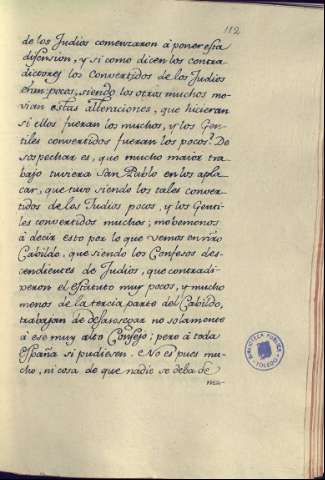 112
de los Judios comenzaron à poner esta
disension, y si como dicen los contra-
dictores los convertidos de los Judios
eran pocos, siendo los otros muchos mo-
vian estas alteraciones, que hicieran
si ellos fueran los muchos, y los Gen-
tiles convertidos fueran los pocos? De
sospechar es, que mucho maior tra-
bajo tuviera San Pablo en los apla-
car, que tuvo siendo los tales conver-
tidos de los Judios pocos, y los Genti-
les convertidos muchos; mobemonos
à decir esto por lo que vemos en nrõ
Cabildo, que siendo los Confesos des-
cendientes de Judios, que contradi-
geron el estatuto muy pocos, y mucho
menos de la tercia parte del Cabildo,
trabajan de desasosegar no solamente
à ese muy alto Consejo; pero à toda
España si pudiesen. No es pues mu-
cho, ni cosa de que nadie se deba de
mar-
BIBLIOTECA PUBLICA
TOLEDO